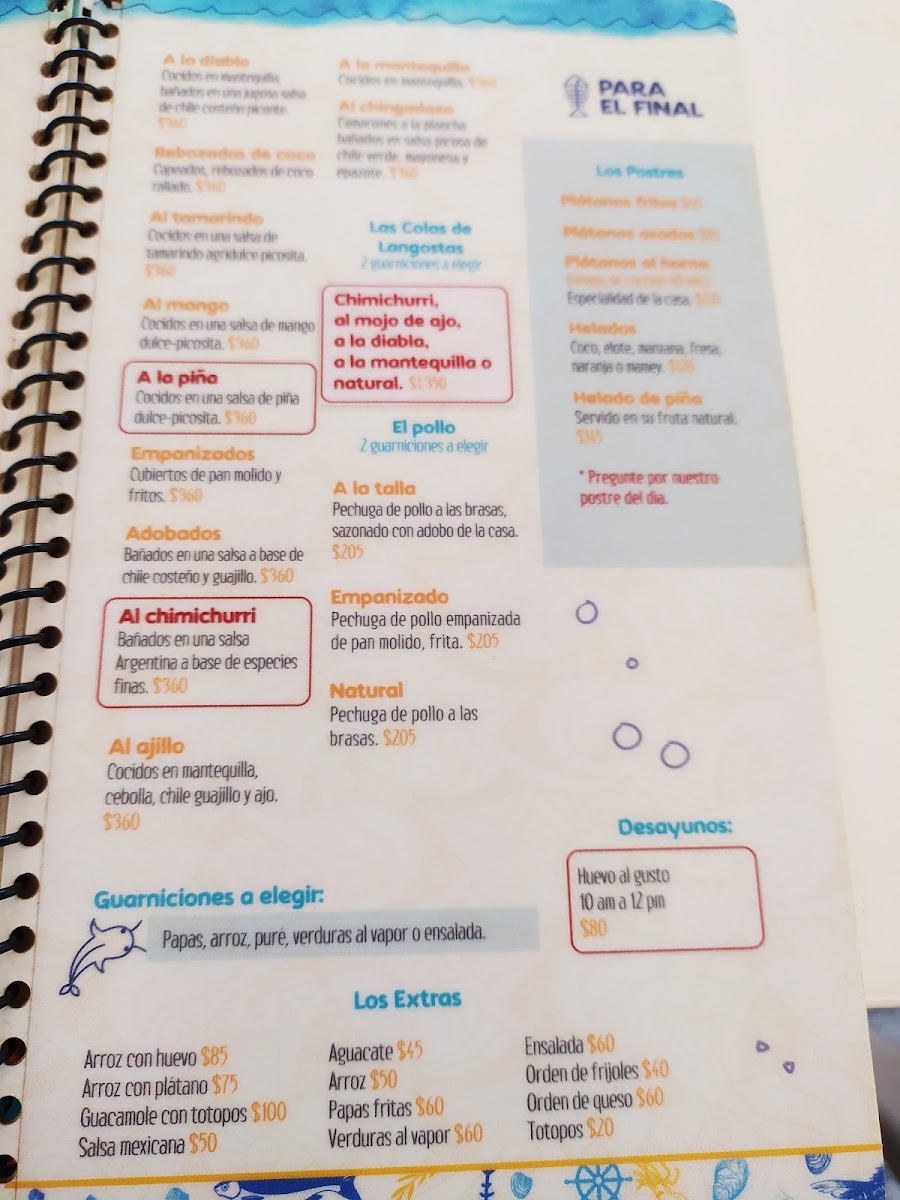 A la diabla
Cocidos en mantequilla,
bañados en una jugosa salsa
de chile costeño picante.
$360
Rebozados de coco
Capeados, rebozados de coco
rallado. $360
Al tamarindo
Cocidos en una salsa de
tamarindo agridulce picosita.
$360
Al mango
Cocidos en una salsa de mango
dulce-picosita. $360
A la piña
Cocidos en una salsa de piña
dulce-picosita. $360
Empanizados
Cubiertos de pan molido y
fritos. $360
Adobados
Bañados en una salsa a base de
chile costeño y guajillo. $360
Al chimichurri
Bañados en una salsa
Argentina a base de especies
finas. $360
Al ajillo
Cocidos en mantequilla,
cebolla, chile guajillo y ajo.
$360
A la mantequilla
Cocidos en mantequilla. $360
Al chingadazo
Camarones a la plancha
bañados en salsa picosa de
chile verde, mayonesa y
epazote. $360
Las Colas de
Langostas
2 guarniciones a elegir
Chimichurri,
al mojo de ajo,
a la diabla,
a la mantequilla o
natural. $1,350
El pollo
2 guarniciones a elegir
A la talla
Pechuga de pollo a las brasas,
sazonado con adobo de la casa.
$205
Empanizado
Pechuga de pollo empanizada
de pan molido, frita. $205
Natural
Pechuga de pollo a las
brasas. $205
PARA
EL FINAL
Los Postres
Plátanos fritos
Plátanos asados
Plátanos al horno
Especialidad de la casa.
Helados
Coco, elote, manzana, fresa,
naranja o mamey.
Helado de piña
Servido en su fruta natural.
$145
* Pregunte por nuestro
postre del día.
Desayunos:
Huevo al gusto
10 am a 12 pm
$80
Guarniciones a elegir:
Papas, arroz, puré, verduras al vapor o ensalada.
Los Extras
Arroz con huevo $85
Arroz con plátano $75
Guacamole con totopos $100
Salsa mexicana $50
Aguacate $45
Arroz $50
Papas fritas $60
Verduras al vapor $60
Ensalada $60
Orden de frijoles $40
Orden de queso $60
Totopos $20